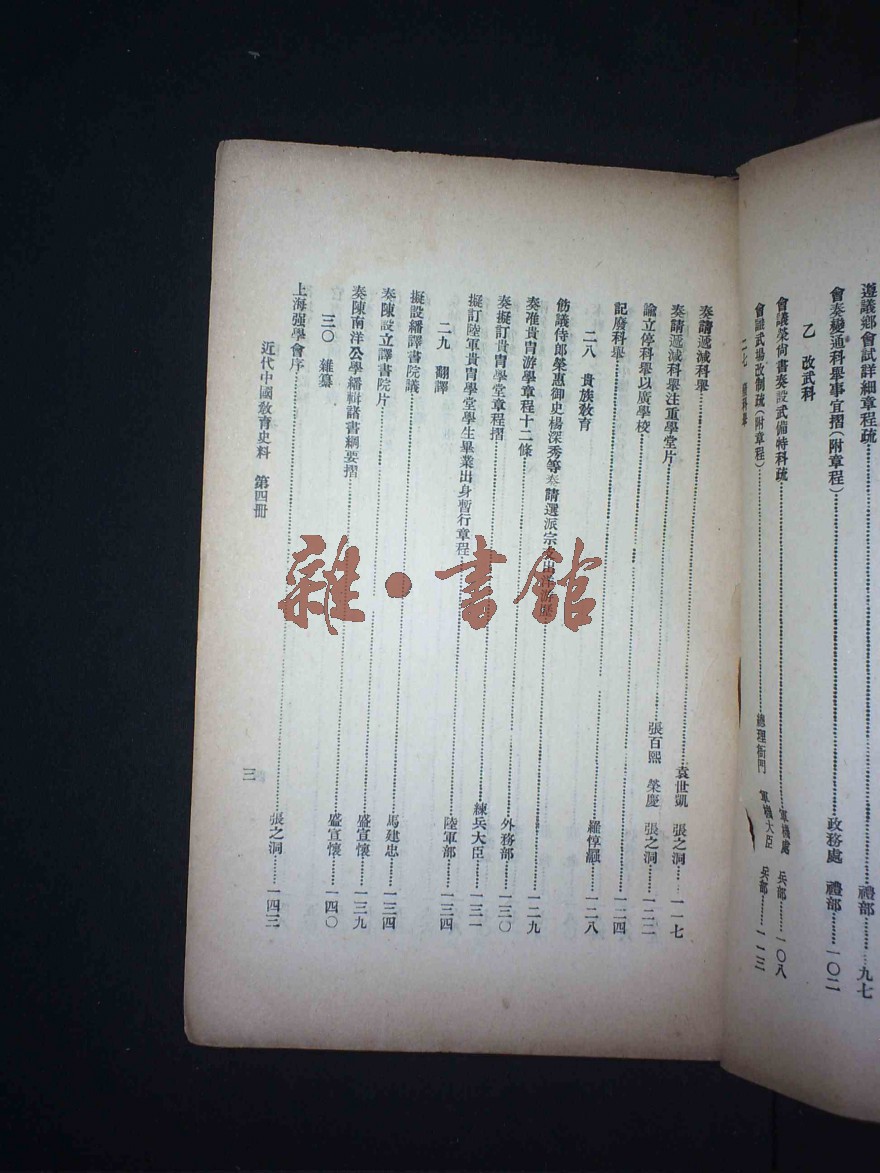 遵議鄉會試詳細章程疏……禮部……九七
會奏變通科舉事宜摺(附章程)……政務處 禮部……一〇二
乙 改武科
會議榮尚書奏設武備特科疏……軍機處 兵部……一〇八
會議武場改制疏(附章程)……總理衙門 軍機大臣 兵部……一一三
二七 廢科舉
奏請遞減科舉……袁世凱 張之洞……一一七
奏請遞減科舉注重學堂片……張百熙 榮慶 張之洞……一二二
諭立停科舉以廣學校……一二四
記廢科舉……羅惇曧……一二八
二八 貴族教育
飭議侍郎榮惠御史楊深秀等奏請選派宗支出洋游歷……一二九
奏准貴胄游學章程十二條……外務部……一三〇
奏擬訂貴胄學堂章程摺……練兵大臣……一三一
擬訂陸軍貴胄學堂學生畢業出身暫行章程……陸軍部……一三四
二九 翻譯
擬設繙譯書院議……馬建忠……一三四
奏陳設立譯書院片……盛宣懷……一三九
奏陳南洋公學繙輯諸書綱要摺……盛宣懷……一四〇
三〇 雜纂
上海强學會序……張之洞……一四三
近代中國敎育史料 第四冊
三
雜·書館